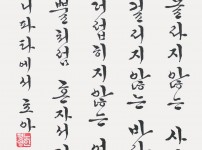 놀라지 않는 사
걸리지 않는 바
럽히지 않는
뿔처럼 혼자서
니파타에서 효아